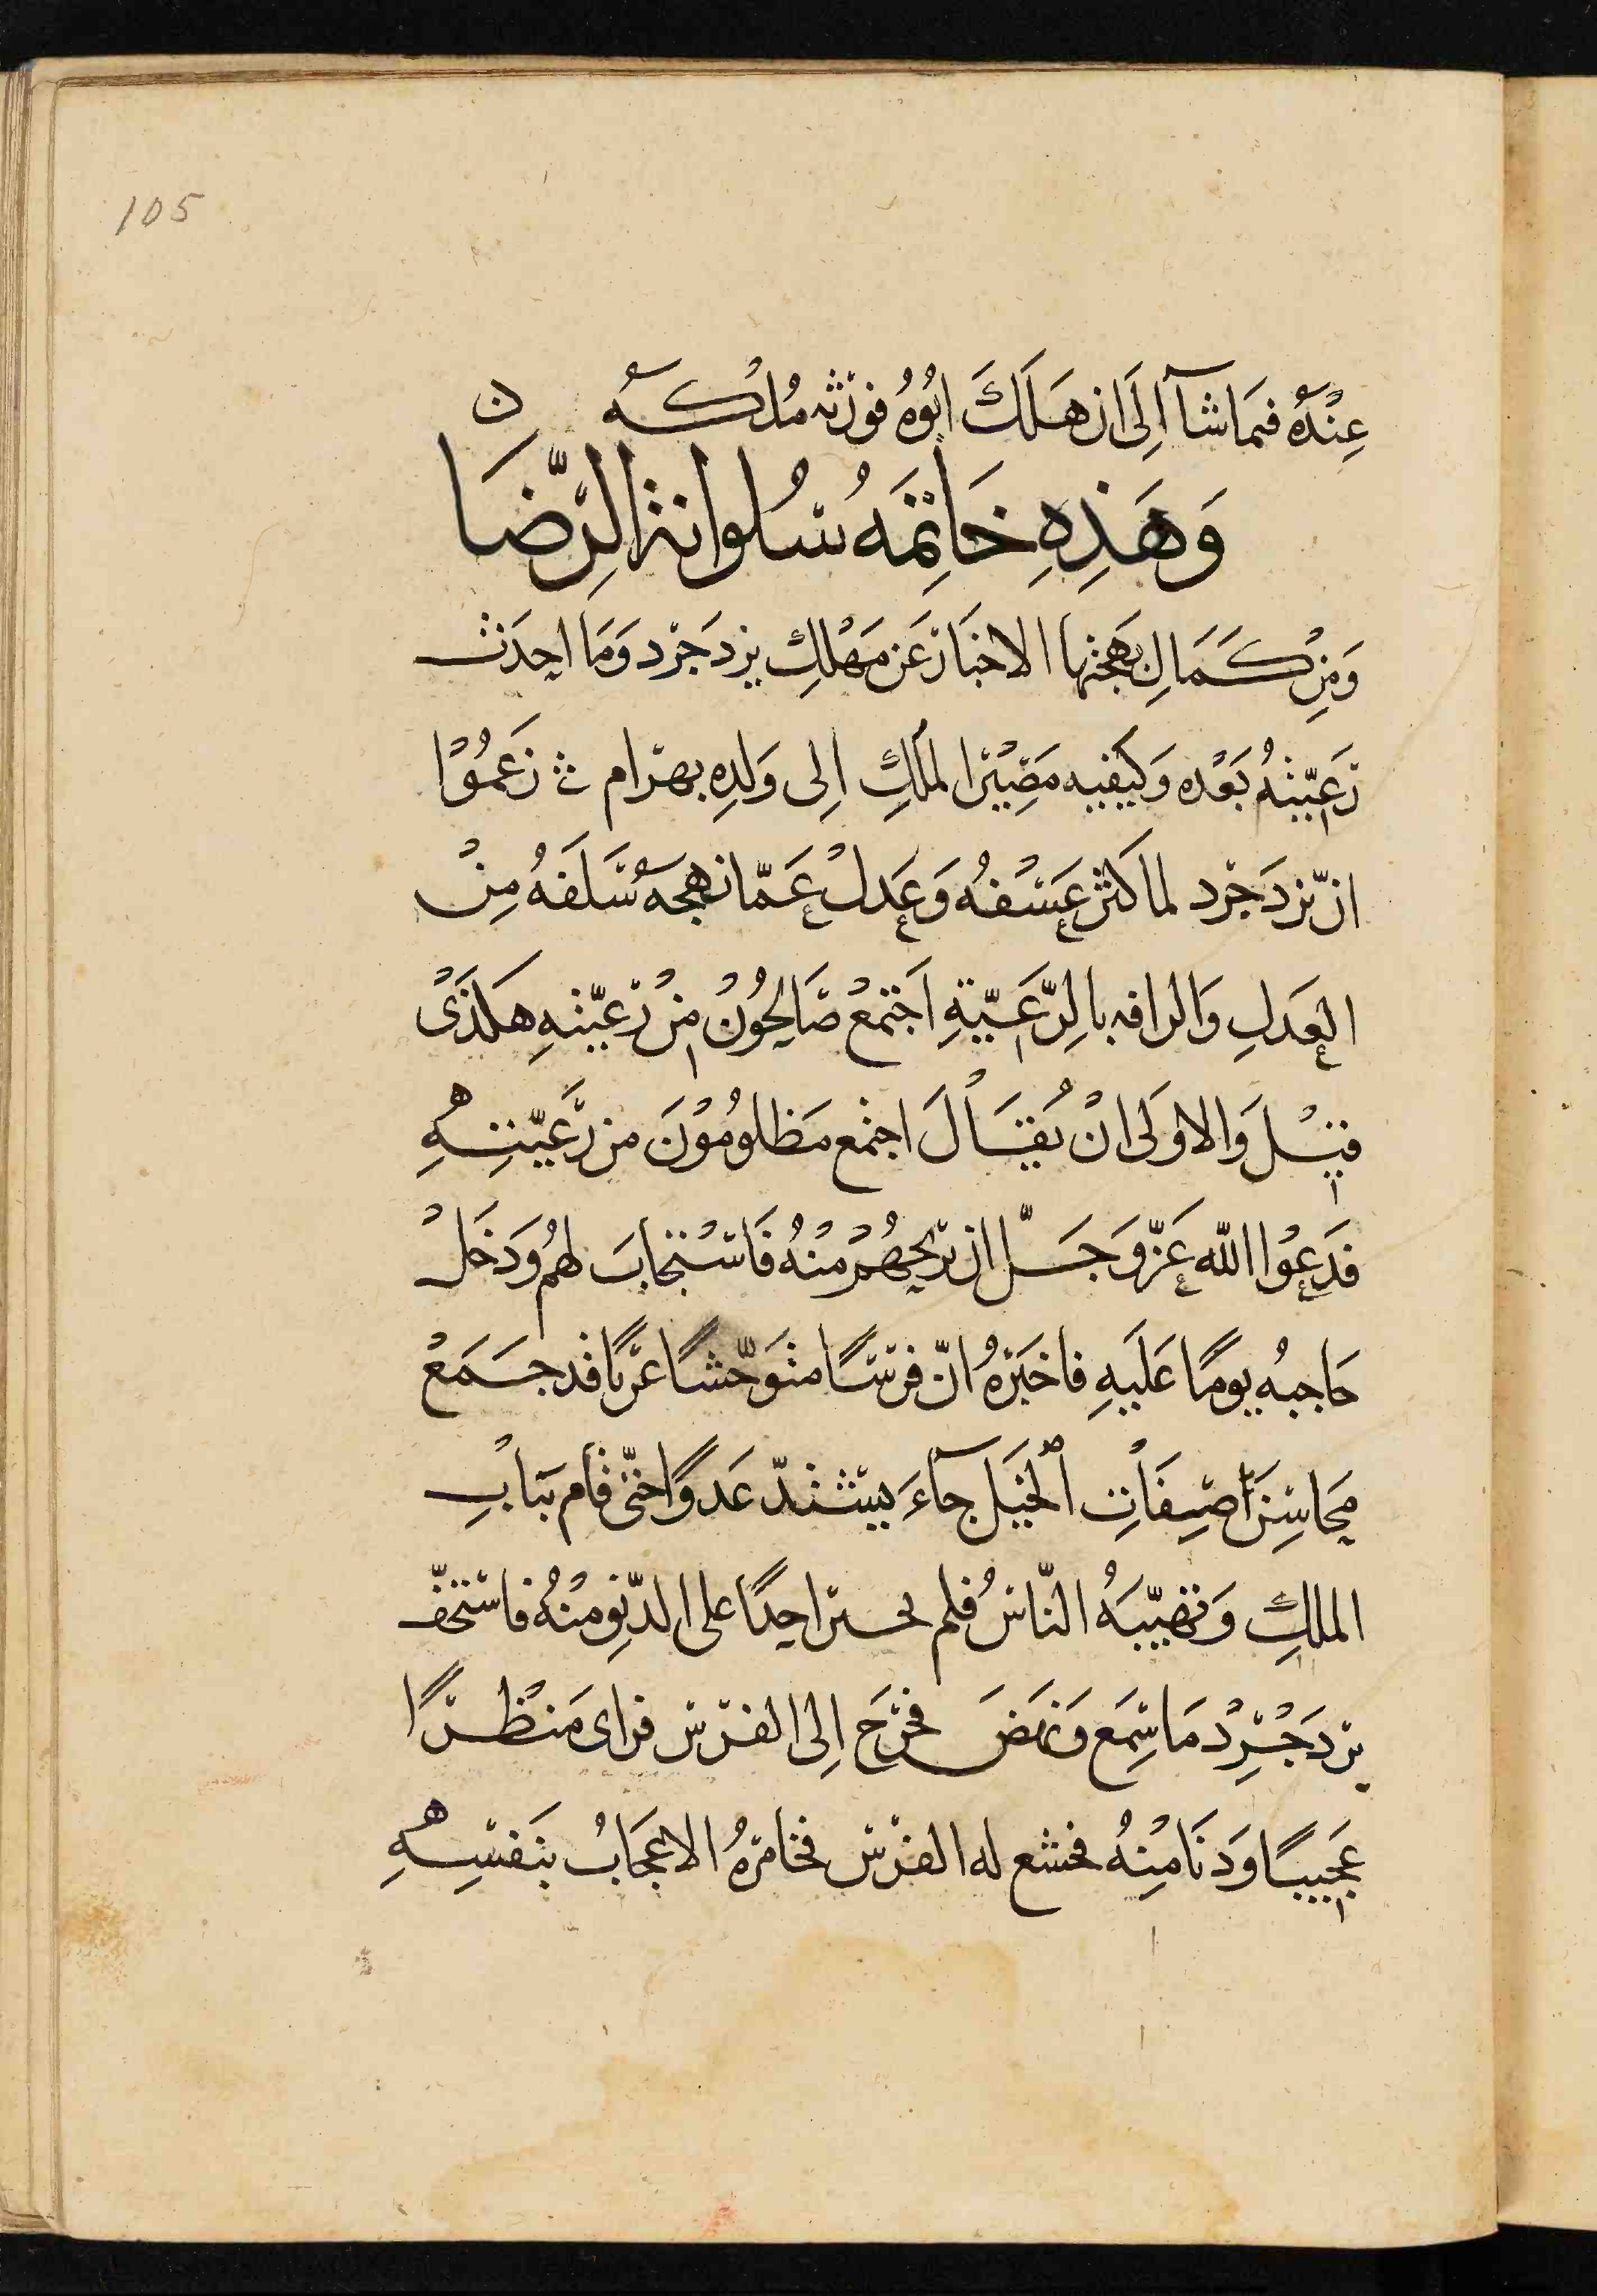 105
عِنْدَهُ فيمَا شآ اِلَى ان هَلَكَ ابُوهُ فوَرثه مُلْكَهُ ن
وَهَذِهِ خَاتِمَهُ سُلوانة الرِّضَا
وَمِنْ كَمَالِ بَهجتها الاخبَار عَن مَهْلِكِ يزدَجَرْد وَمَا احدَثت
رَعيّتهُ بَعْده وَكيفيه مَصِيْر الملكِ اِلى وَلَدِه بهرام ث زَعَمُوْا
انّ يزدَجَرْد لما كثر عَسْفُه وَعَدلْ عَمّا نهجهُ سَلَفهُ مِنْ
العَدلِ وَالرافه بالِرّعَيّةِ اَجتمعْ صَالِحُونْ مِنْ رعيّتهِ هكذَىْ
قيْلَ وَالاوَلى انْ يُقَالَ اجتمع مَظلومُوْنَ من رَعيّتِهِ
فَدَعوْا الله عَزّ وَجَلّ ان يريحهُمْ منْهُ فَاسْتجابَ لهُم وَدَخَلْ
حَاجبهُ يومًا عَلَيهِ فاخبَرهُ انّ فرسًا متوَحّشًا عَربًا قد جَمَعْ
محاسِنَ صِفَاتِ الخَيل جآءَ يشتدّ عَدوًا حتّى قام ببَابِ
الملكِ وَتهيّبَهُ النّاسُ فلم يجسر احدًا على الدّنِو منْهُ فاستخفّ
يزدَجُرِدْ مَا سَمِع وَنهَضَ فخرَج اِلى الفرَس فراى مَنظْرًا
عَجيبًا وَدنَا مِنْهُ فخشع له الفرَس فخامَرهُ الاعجَابُ بنَفسِهِ